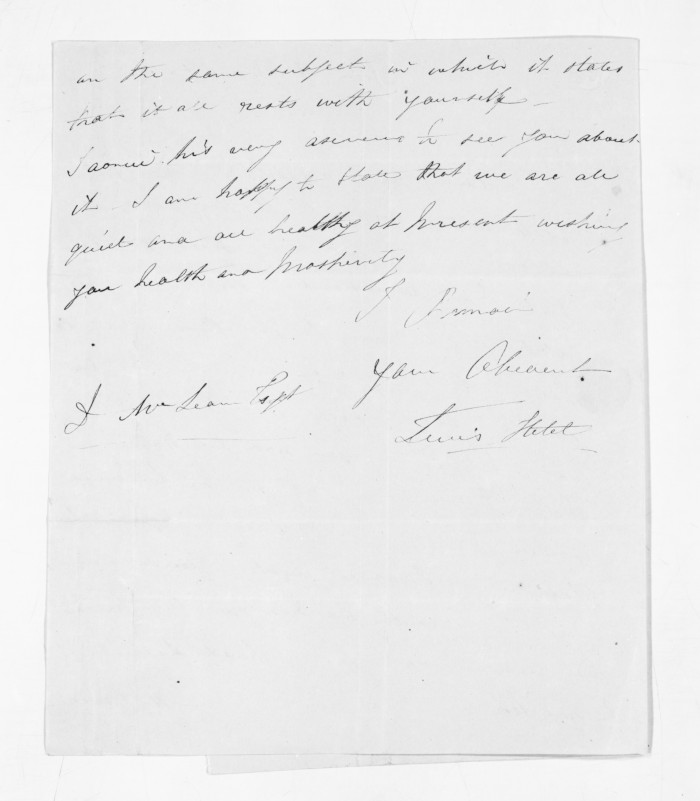 on the same subject in which it states
that it all rests with yourself –
his very anxious to see you about
it. I am happy to state that we are all
quiet and all healthy at present wishing
you health and prosperity
I remain
your Obedient
D McLean Esqr
Lewis